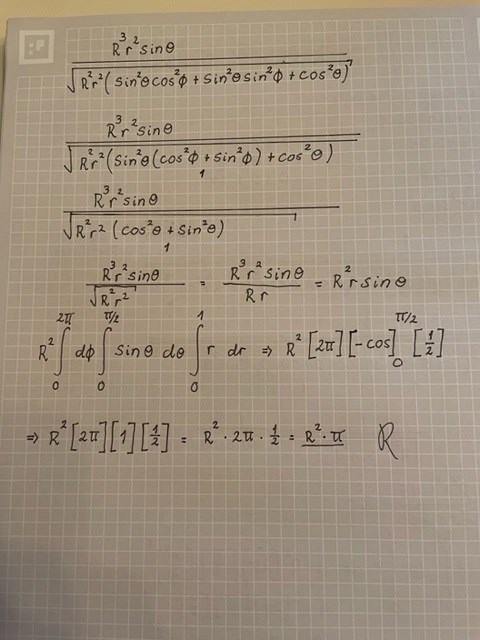 :F
R³r²sinθ
√R²r²(sin²θcos²ϕ + sin²θsin²ϕ + cos²θ)
R³r²sinθ
√R²r²(sin²θ(cos²ϕ + sin²ϕ) + cos²θ)
1
R³r²sinθ
√R²r²(cos²θ + sin²θ)
1
R³r²sinθ / √R²r² = R³r²sinθ / Rr = R²r sinθ
R² ∫₀^2π dϕ ∫₀^π/2 sinθ dθ ∫₀^1 r dr ⇒ R²[2π][-cos]₀^π/2 [1/2]
⇒ R²[2π][1][1/2] = R² · 2π · 1/2 = R² · π R